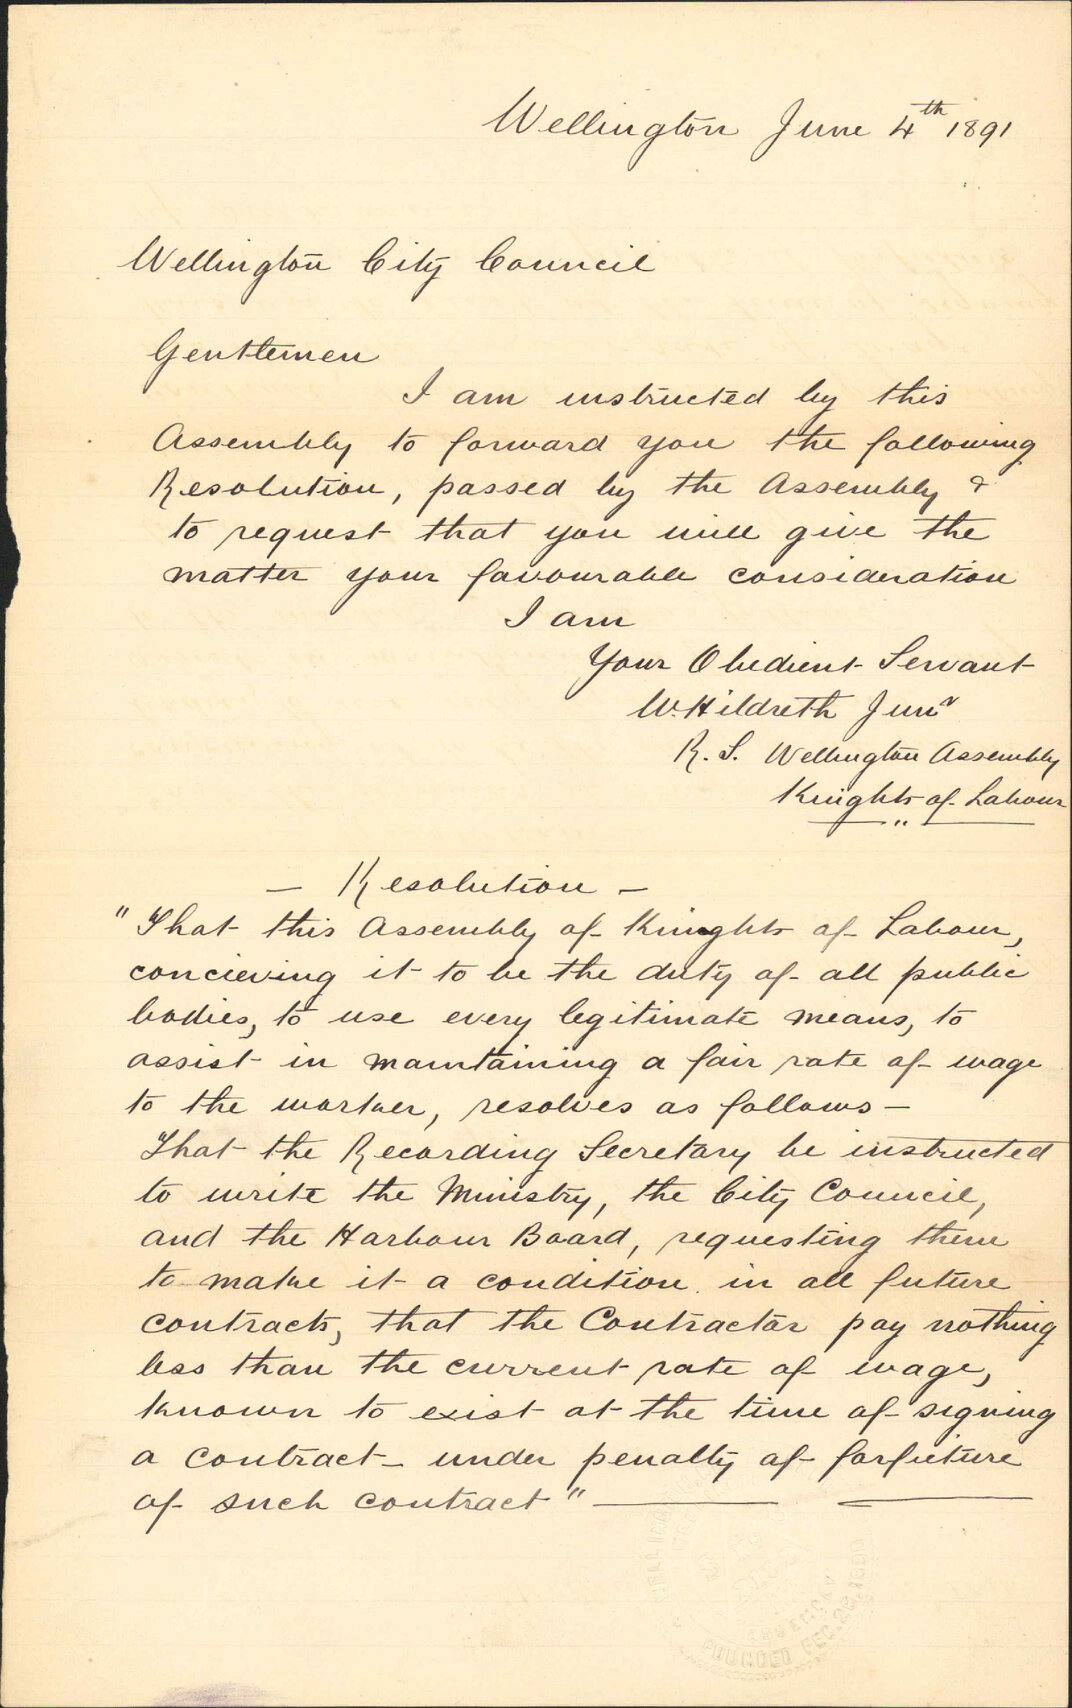 Wellington June 4th 1891
Wellington City Council
Gentlemen
I am instructed by this
Assembly to forward you the following
Resolution, passed by the Assembly &
to request that you will give the
matter your favourable consideration
I am
Your Obedient Servant
W. Hildreth Junr
R. S. Wellington Assembly
Knights of Labour
— Resolution —
"That this Assembly of Knights of Labour,
concieving it to be the duty of all public
bodies, to use every legitimate means, to
assist in maintaining a fair rate of wage
to the worker, resolves as follows —
That the Recording Secretary be instructed
to write the Ministry, the City Council,
and the Harbour Board, requesting them
to make it a condition in all future
contracts, that the Contractor pay nothing
less than the current rate of wage,
known to exist at the time of signing
a contract under penalty of forfieture
of such contract"
FOUNDED DEC. 28, 18